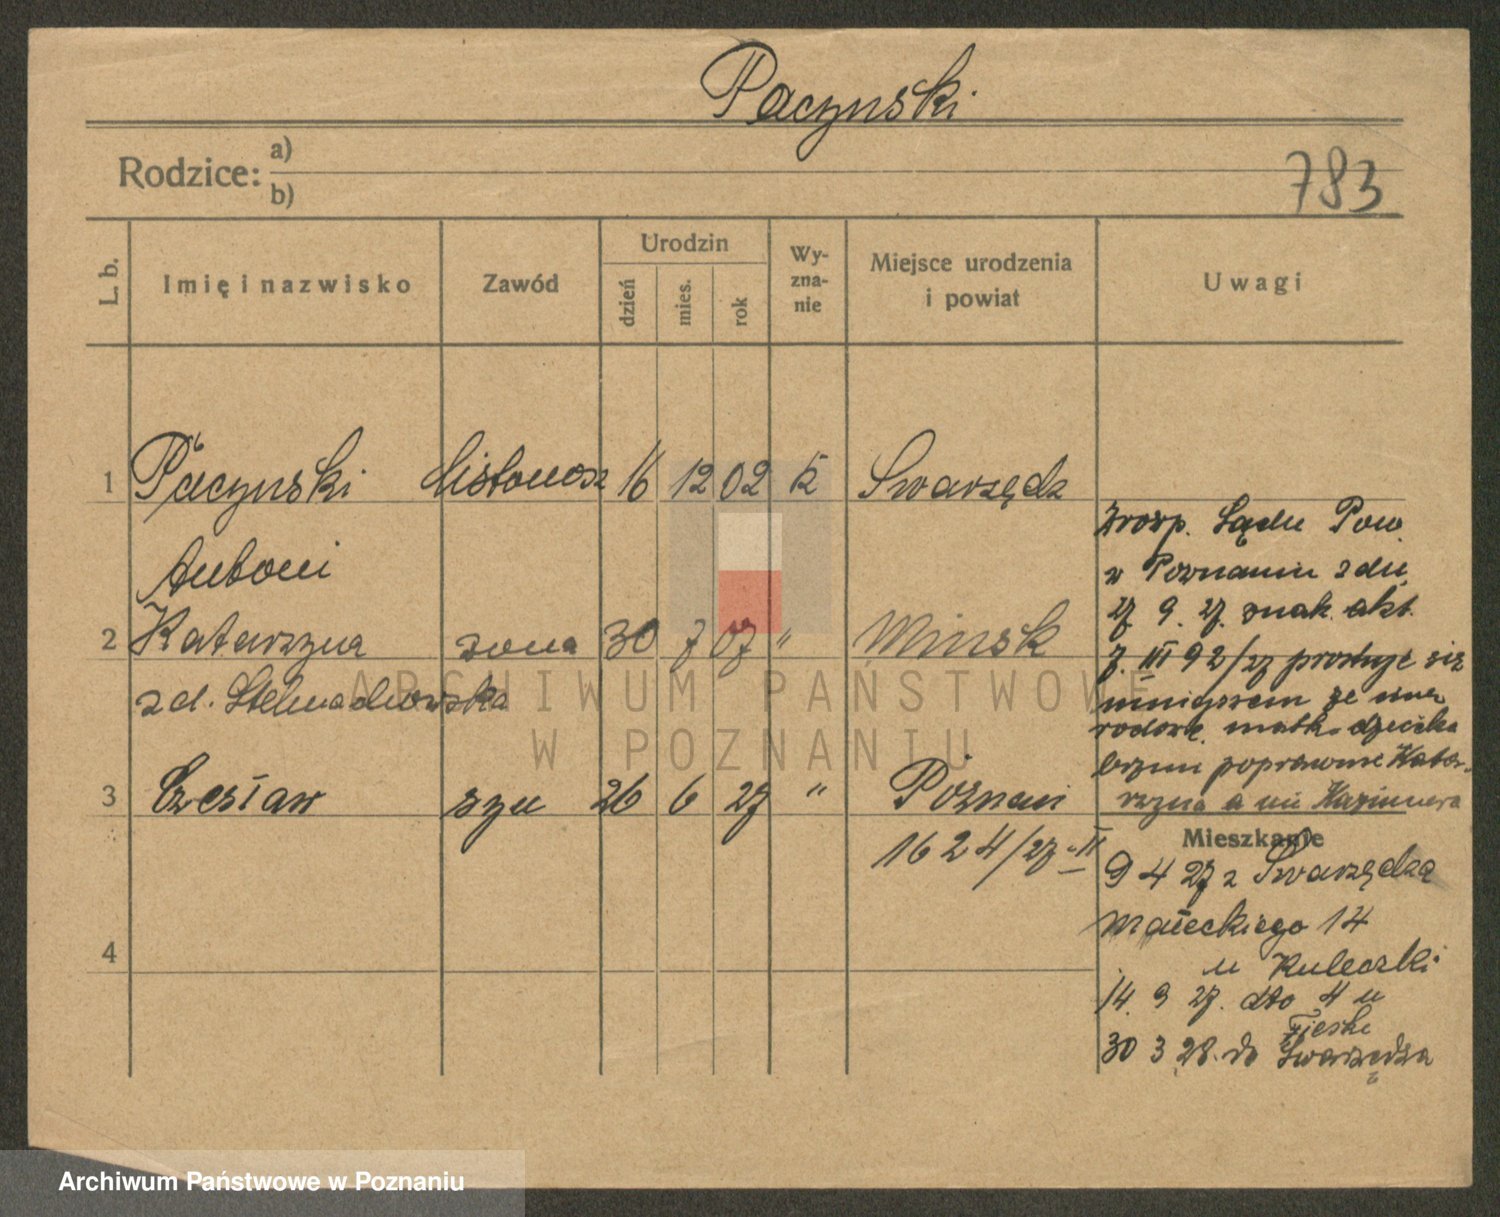 Paczynski
Rodzice: a)
b)
783
L. b.
Imię i nazwisko
Zawód
Urodzin
dzień
mies.
rok
Wy-
zna-
nie
Miejsce urodzenia
i powiat
Uwagi
1 Paczynski listonosz 16 12 02 k Swarzędz
Antoni
2 Katarzyna zona 30 7 07 " Minsk
zd. Stelmachowska
3 Czesław syn 26 6 27 " Poznan
1624/27 II
4
Sądu Pow.
w Poznaniu z dn
27 9. 27. znak. akt.
7. III 92/27 prostuje się
niniejszem że imię
matki dziecka
brzmi poprawnie Katar-
rzyna a nie Kazimiera
Mieszkanie
9 4 27 z Swarzędza
Małeckiego 14
u
14. 9 27. dto 4 u
30 3 28. do Swarzędza
ARCHIWUM PAŃSTWOWE
W POZNANIU
Archiwum Państwowe w Poznaniu